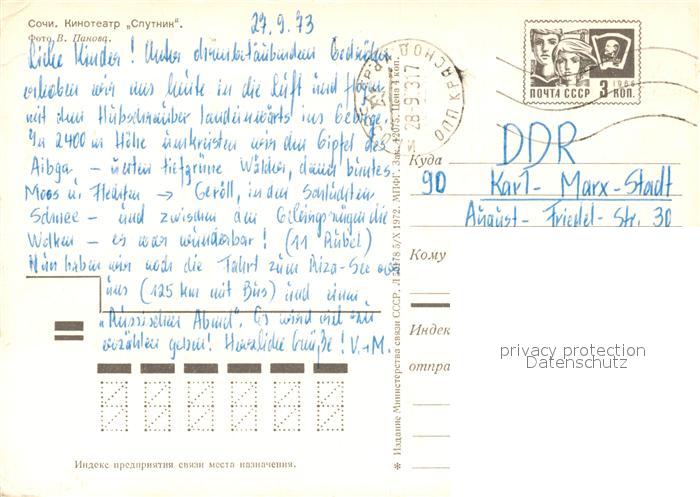 Сочи. Кинотеатр „Спутник“.
Фото В. Панова.
27.9.73
Liebe Kinder! Unter ohrenbetäubendem Gedröhn
erhoben wir uns heute in die Luft und flogen
mit dem Hubschrauber landeinwärts ins Gebirge.
In 2400 m Höhe umkreisten wir den Gipfel des
Aibga – unten tiefgrüne Wälder, dann buntes
Moos u. Flechten → Geröll, in den Schluchten
Schnee – und zwischen den Gebirgszügen die
Wolken – es war wunderbar! (11 Rubel)
Nun haben wir noch die Fahrt zum Riza-See vor
uns (125 km mit Bus) und einen
„Russischen Abend“. Es wird viel zu
erzählen geben! Herzliche Grüße! V. + M.
Индекс предприятия связи места назначения.
Издание Министерства связи СССР. 5/X 1972. МПФГ. Зак. 42075. Цена 4 коп.
28-9
ПОЧТА СССР 3 КОП.
1966
Куда
DDR
90 Karl-Marx-Stadt
August-Friedel-Str. 30
Кому
Индек
отпра
privacy protection
Datenschutz